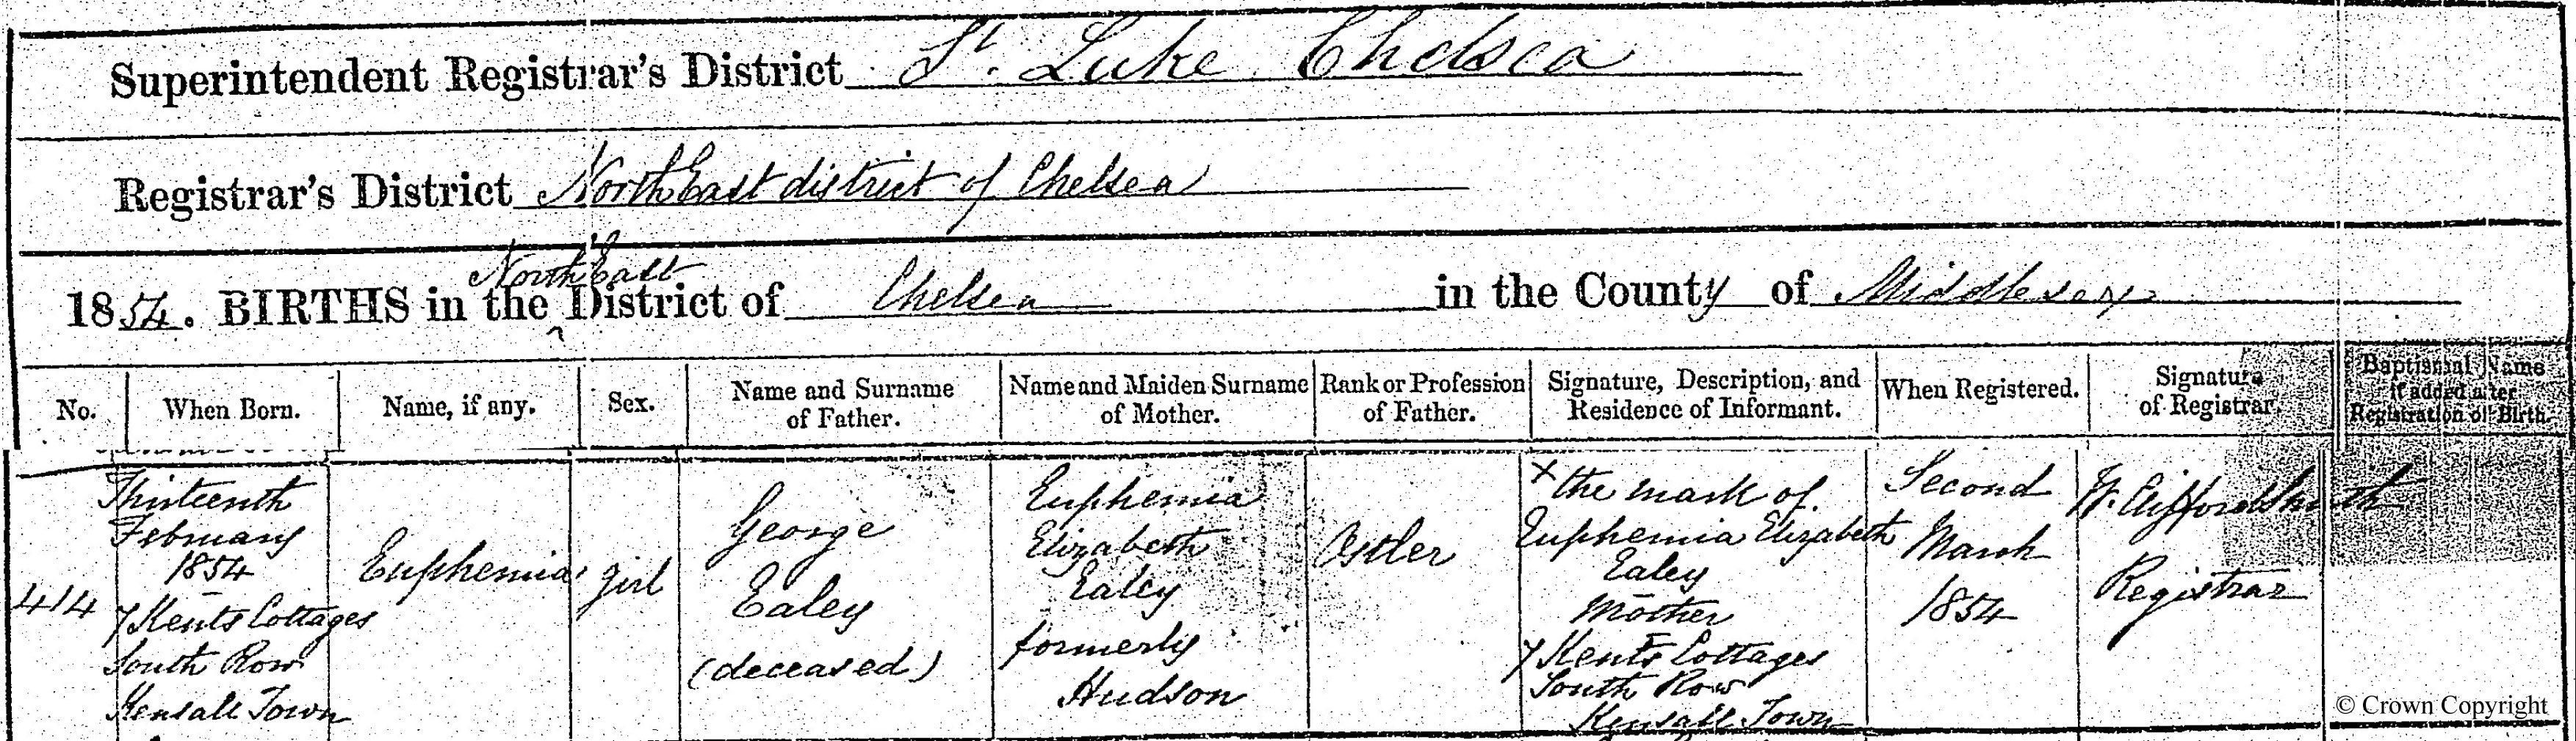 Superintendent Registrar's District St. Luke Chelsea
Registrar's District North East district of Chelsea
North East
1854. BIRTHS in the District of Chelsea in the County of Middlesex
No.
When Born.
Name, if any.
Sex.
Name and Surname
of Father.
Name and Maiden Surname
of Mother.
Rank or Profession
of Father.
Signature, Description, and
Residence of Informant.
When Registered.
Signature
of Registrar.
Baptismal Name
if added after
Registration of Birth.
414
Thirteenth
February
1854
7 Kents Cottages
South Row
Kensall Town
Euphemia
girl
George
Ealey
(deceased)
Euphemia
Elizabeth
Ealey
formerly
Hudson
Ostler
X the mark of
Euphemia Elizabeth
Ealey
Mother
7 Kents Cottages
South Row
Kensall Town
Second
March
1854
W. Clifford Smith
Registrar
© Crown Copyright